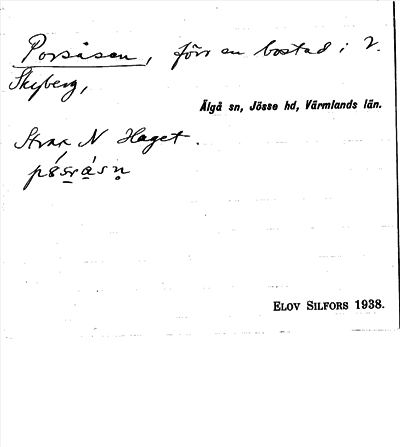 Porsåsen, förr en bostad i V.
Skyberg,
Älgå sn, Jösse hd, Värmlands län.
Strax N Haget.
ELOV SILFORS 1938.